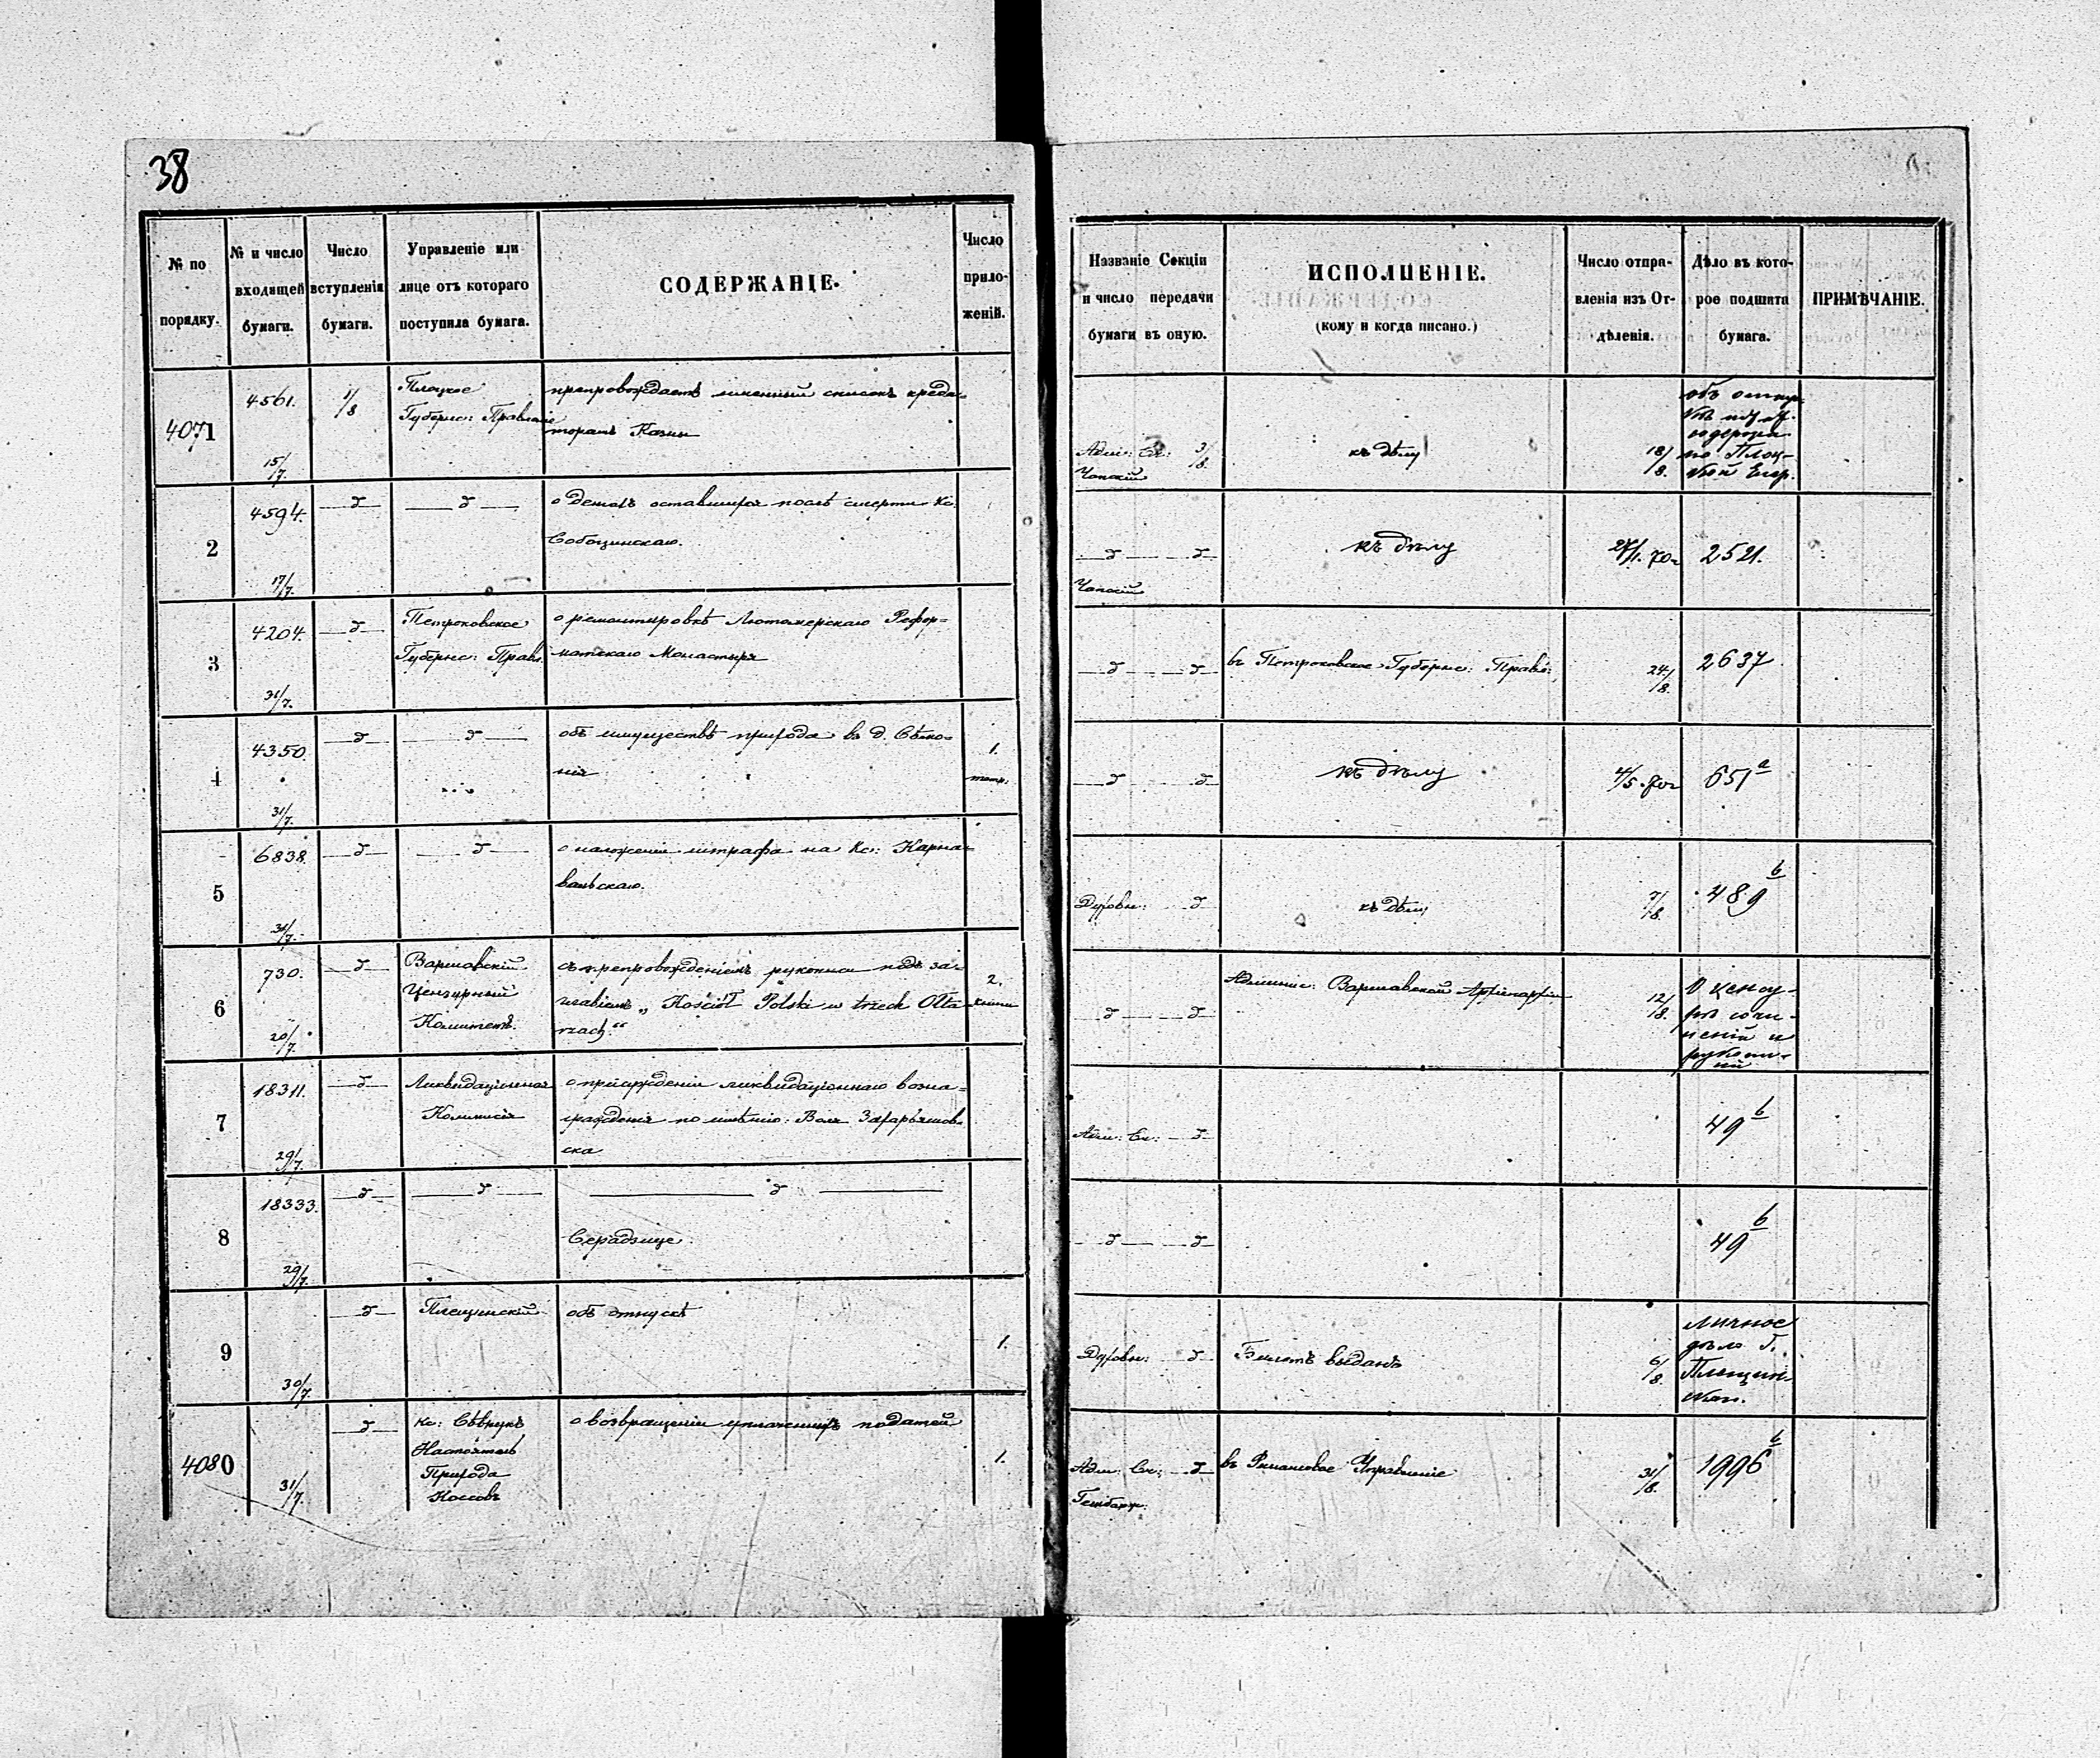 38
№ по порядку.
№ и число входящей бумаги.
Число вступленія бумаги.
Управленіе или лице отъ котораго поступила бумага.
СОДЕРЖАНІЕ.
Число приложеній.
Названіе Секціи и число передачи бумаги въ оную.
ИСПОЛНЕНІЕ.
(кому и когда писано.)
Число отправленія изъ Отдѣленія.
Дѣло въ которое подшита бумага.
ПРИМѢЧАНІЕ.
4071
4561.
15/7.
1/8
Плоцкое
Губернс: Правленіе
препровождаетъ именный списокъ креди-
торамъ Казны
Адми: Ск: 3/8.
Чапскій
къ дѣлу
18/8.
объ
по Плоц-
кой Епар.
2
4594.
17/7.
— d —
— d —
о детяхъ оставшихся послѣ смерти Кс.
Собоцинскаго.
— d — d —
Чапскій
къ дѣлу
2521.
3
4204.
31/7.
— d —
Петроковское
Губернс: Правл.
о ремонтировкѣ Лютомерскаго Рефор-
матскаго Монастыря
— d — d —
въ Петроковское Губернс: Правл:
24/8.
2637.
4
4350.
31/7.
— d —
— d —
объ имуществѣ прихода въ д. Сѣмо-
нія
1.
тетр.
— d — d
къ дѣлу
4/5. 70г
651 a
5
6838.
31/7.
— d —
— d —
о наложеніи штрафа на Кс: Карна-
вальскаго.
Духовн: d
къ дѣлу
7/8.
489 b
6
730.
20/7.
— d —
Варшавскій
Цензурный
Комитетъ.
съ препровожденіемъ рукописи подъ за-
главіемъ „Kościół Polski w trzech Ołta-
rzach."
2.
книги
— d — d —
Админис: Варшавской Архіепархіи
12/8.
О ценсу-
рѣ сочи-
неній и
рукопи-
сій
7
18311.
29/7.
— d —
Ликвидаціонная
Коммисія
о присужденіи ликвидаціоннаго возна-
гражденія по имѣнію: Воля Захарьяшов-
ска
Адм: Ск: — d
49 b
8
18333.
29/7.
— d —
— d —
— d —
Серадзице
— d — d
49 b
9
30/7.
— d —
Плещинскій
объ отпускѣ
1.
Духовн: d
Билетъ выданъ
6/8.
личное
дѣло Г.
Плещин-
скаго.
4080
31/7.
— d —
Кс:
Настоятель
Прихода
Коссовъ
о возвращеніи уплаченныхъ податей
1.
Адм: Ск: — d
въ Финансовое Управленіе
31/8.
1996 b